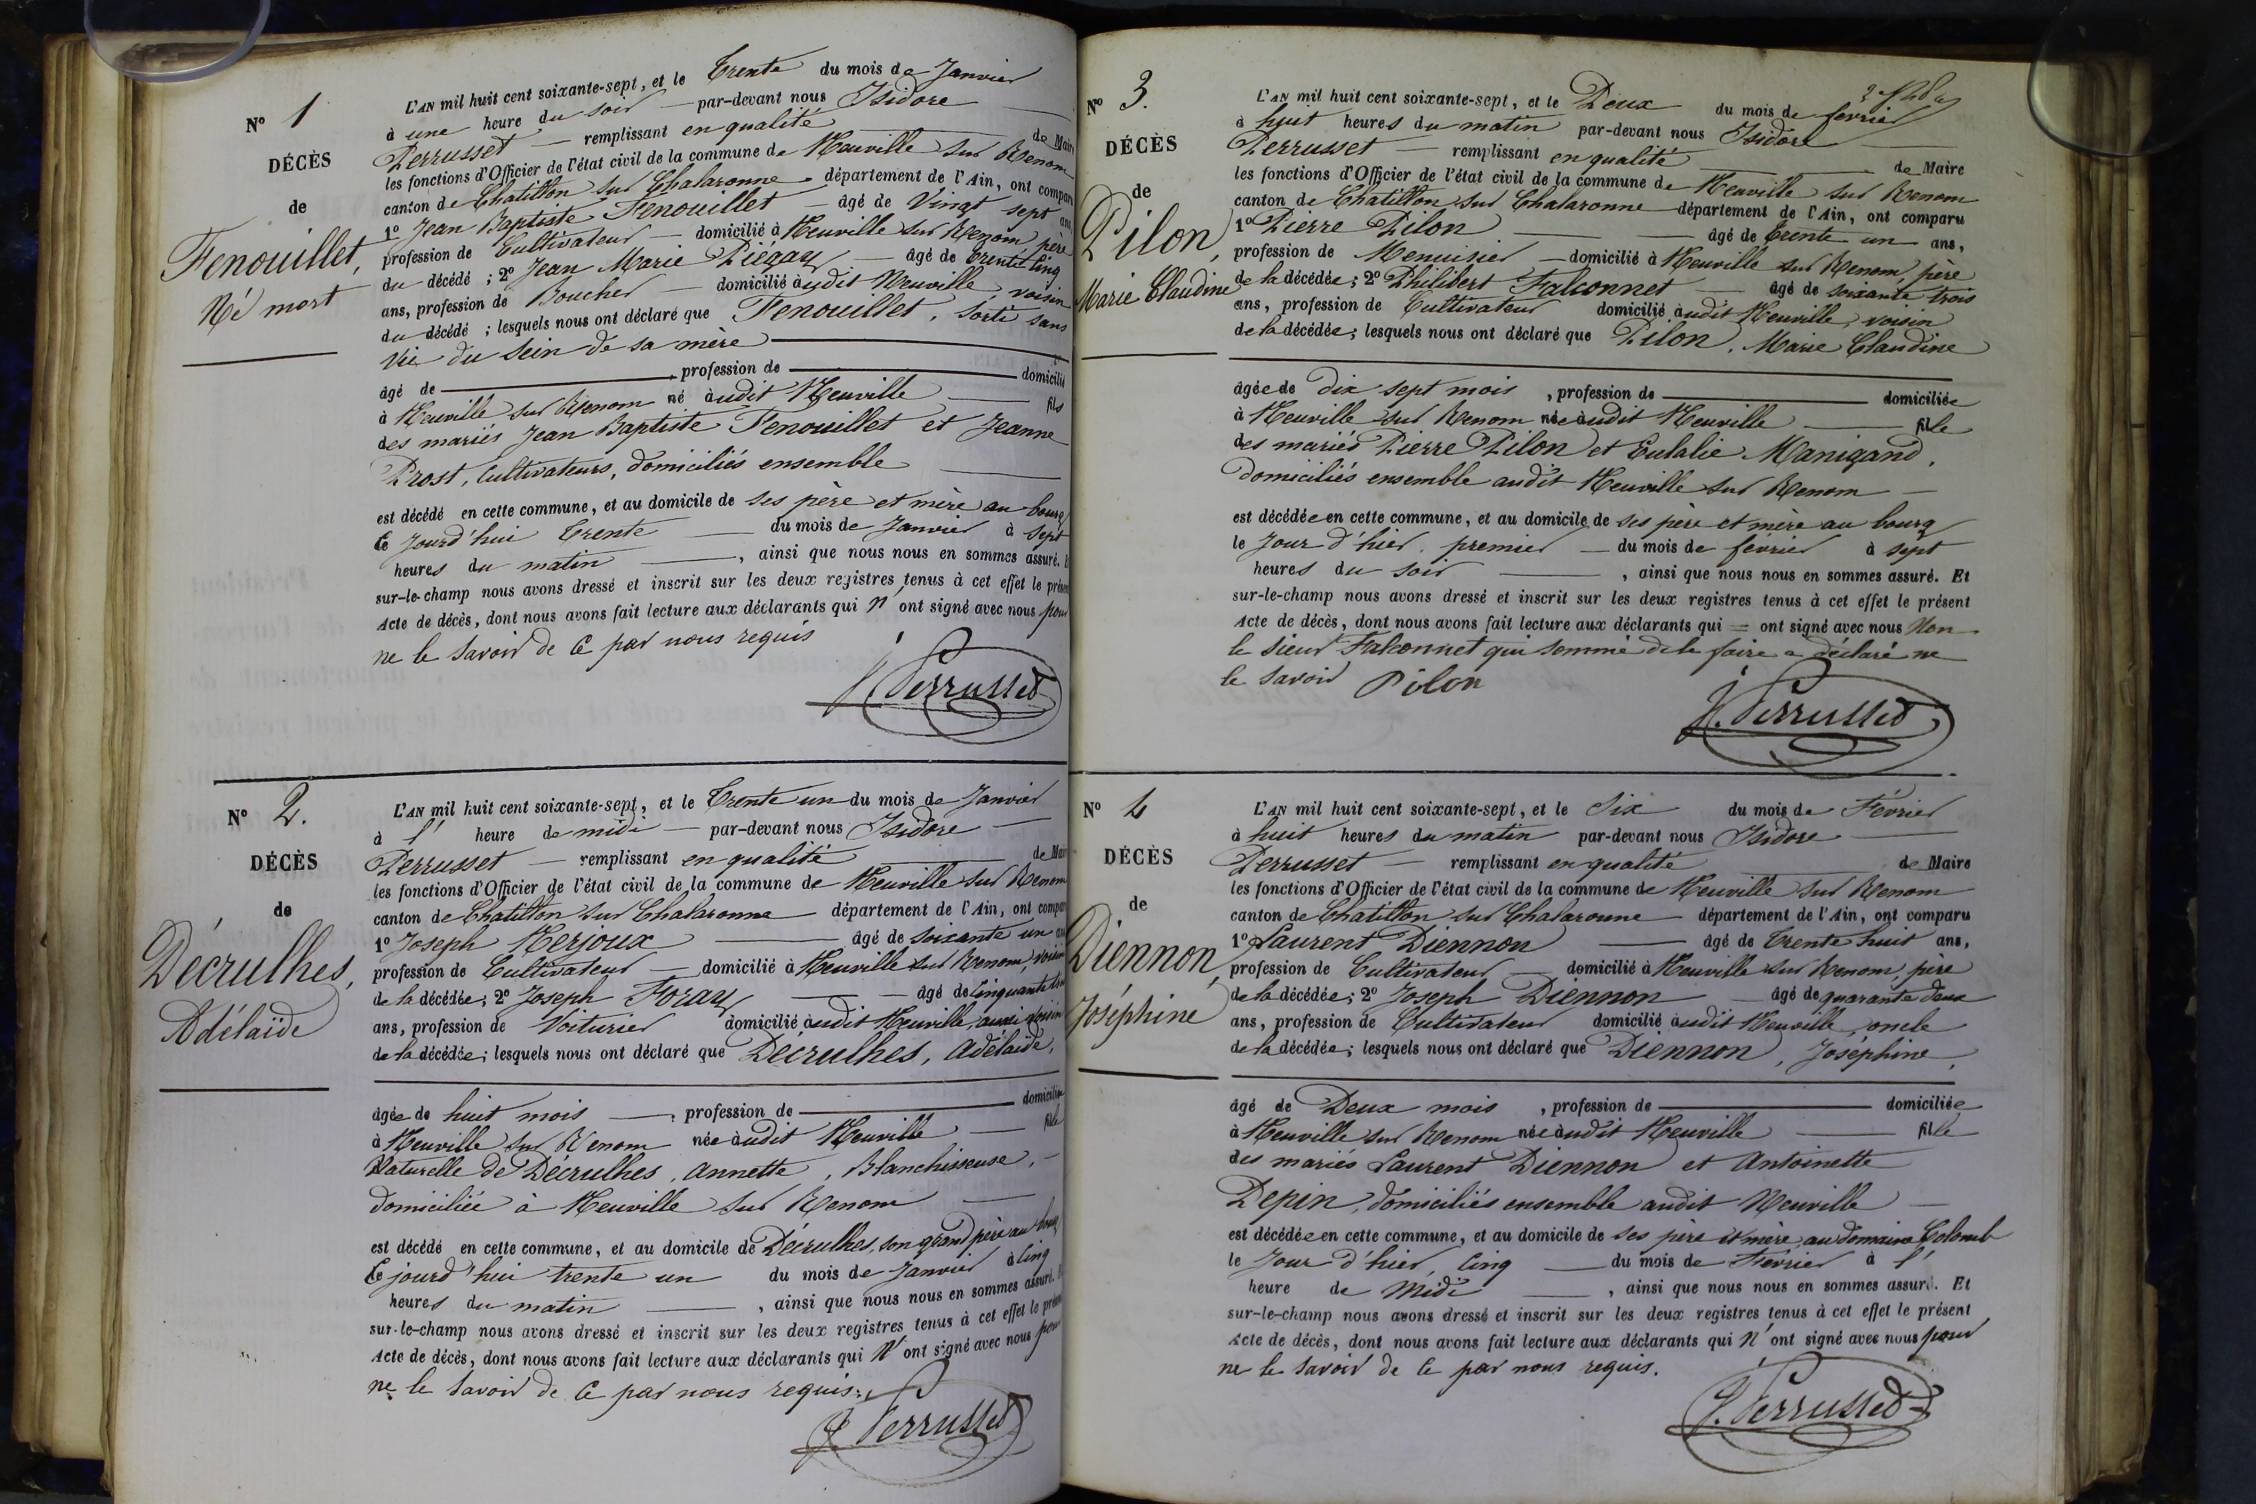 N° 1
DÉCÈS
de
Fenouillet,
Né mort
L'AN mil huit cent soixante-sept, et le Trente du mois de Janvier
à une heure du soir par-devant nous Isidore
Perrusset remplissant en qualité de Maire
les fonctions d'Officier de l'état civil de la commune de Neuville sur Renom
canton de Chatillon sur Chalaronne département de l'Ain, ont comparu
1° Jean Baptiste Fenouillet âgé de Vingt sept ans,
profession de Cultivateur domicilié à Neuville sur Renom, père
du décédé ; 2° Jean Marie Piégay âgé de trente cinq
ans, profession de Boucher domicilié audit Neuville, voisin
du décédé ; lesquels nous ont déclaré que Fenouillet, sorti sans
vie du sein de sa mère
âgé de , profession de domicilié
à Neuville sur Renom né audit Neuville fils
des mariés Jean Baptiste Fenouillet et Jeanne
Prost, Cultivateurs, domiciliés ensemble
est décédé en cette commune, et au domicile de ses père et mère au bourg
Ce jourd'hui trente du mois de Janvier à sept
heures du matin , ainsi que nous nous en sommes assuré. Et
sur-le-champ nous avons dressé et inscrit sur les deux registres tenus à cet effet le présent
Acte de décès, dont nous avons fait lecture aux déclarants qui n'ont signé avec nous pour
ne le savoir de ce par nous requis
J. Perrusset
N° 2.
DÉCÈS
de
Décrulhes,
Adélaïde
L'AN mil huit cent soixante-sept, et le Trente un du mois de Janvier
à l' heure de midi par-devant nous Isidore
Perrusset remplissant en qualité de Maire
les fonctions d'Officier de l'état civil de la commune de Neuville sur Renom
canton de Chatillon sur Chalaronne département de l'Ain, ont comparu
1° Joseph Merjoux âgé de soixante un ans
profession de Cultivateur domicilié à Neuville sur Renom, voisin
de la décédée ; 2° Joseph Foray âgé de cinquante
ans, profession de Voiturier domicilié audit Neuville, aussi voisin
de la décédée ; lesquels nous ont déclaré que Décrulhes, Adélaïde,
âgée de huit mois , profession de domiciliée
à Neuville sur Renom née audit Neuville fille
Naturelle de Décrulhes, Annette, Blanchisseuse,
domiciliée à Neuville sur Renom
est décédé en cette commune, et au domicile de Décrulhes, son grand père au bourg
Ce jourd'hui trente un du mois de Janvier à cinq
heures du matin , ainsi que nous nous en sommes assuré. Et
sur-le-champ nous avons dressé et inscrit sur les deux registres tenus à cet effet le présent
Acte de décès, dont nous avons fait lecture aux déclarants qui n'ont signé avec nous pour
ne le savoir de ce par nous requis.
J. Perrusset
N° 3.
DÉCÈS
de
Pilon,
Marie Claudine
L'AN mil huit cent soixante-sept, et le Deux du mois de février
à huit heures du matin par-devant nous Isidore
Perrusset remplissant en qualité de Maire
les fonctions d'Officier de l'état civil de la commune de Neuville sur Renom
canton de Chatillon sur Chalaronne département de l'Ain, ont comparu
1° Pierre Pilon âgé de trente un ans,
profession de Menuisier domicilié à Neuville sur Renom, père
de la décédée ; 2° Philibert Falconnet âgé de soixante trois
ans, profession de Cultivateur domicilié audit Neuville, voisin
de la décédée ; lesquels nous ont déclaré que Pilon, Marie Claudine
âgée de dix sept mois , profession de domiciliée
à Neuville sur Renom née audit Neuville fille
des mariés Pierre Pilon et Eulalie Manigand,
domiciliés ensemble audit Neuville sur Renom
est décédée en cette commune, et au domicile de ses père et mère au bourg
le jour d'hier, premier du mois de février à sept
heures du soir , ainsi que nous nous en sommes assuré. Et
sur-le-champ nous avons dressé et inscrit sur les deux registres tenus à cet effet le présent
Acte de décès, dont nous avons fait lecture aux déclarants qui = ont signé avec nous Non
le sieur Falconnet qui sommé de le faire a déclaré ne
le savoir Pilon
J. Perrusset
N° 4
DÉCÈS
de
Diennon,
Joséphine
L'AN mil huit cent soixante-sept, et le Six du mois de Février
à huit heures du matin par-devant nous Isidore
Perrusset remplissant en qualité de Maire
les fonctions d'Officier de l'état civil de la commune de Neuville sur Renom
canton de Chatillon sur Chalaronne département de l'Ain, ont comparu
1° Laurent Diennon âgé de trente huit ans,
profession de Cultivateur domicilié à Neuville sur Renom, père
de la décédée ; 2° Joseph Diennon âgé de quarante deux
ans, profession de Cultivateur domicilié audit Neuville, oncle
de la décédée ; lesquels nous ont déclaré que Diennon, Joséphine,
âgé de Deux mois , profession de domiciliée
à Neuville sur Renom née audit Neuville fille
des mariés Laurent Diennon et Antoinette
Depin, domiciliés ensemble audit Neuville
est décédée en cette commune, et au domicile de ses père et mère, au domaine Colomb
le jour d'hier, cinq du mois de Février à l'
heure de Midi , ainsi que nous nous en sommes assuré. Et
sur-le-champ nous avons dressé et inscrit sur les deux registres tenus à cet effet le présent
Acte de décès, dont nous avons fait lecture aux déclarants qui n'ont signé avec nous pour
ne le savoir de ce par nous requis.
J. Perrusset